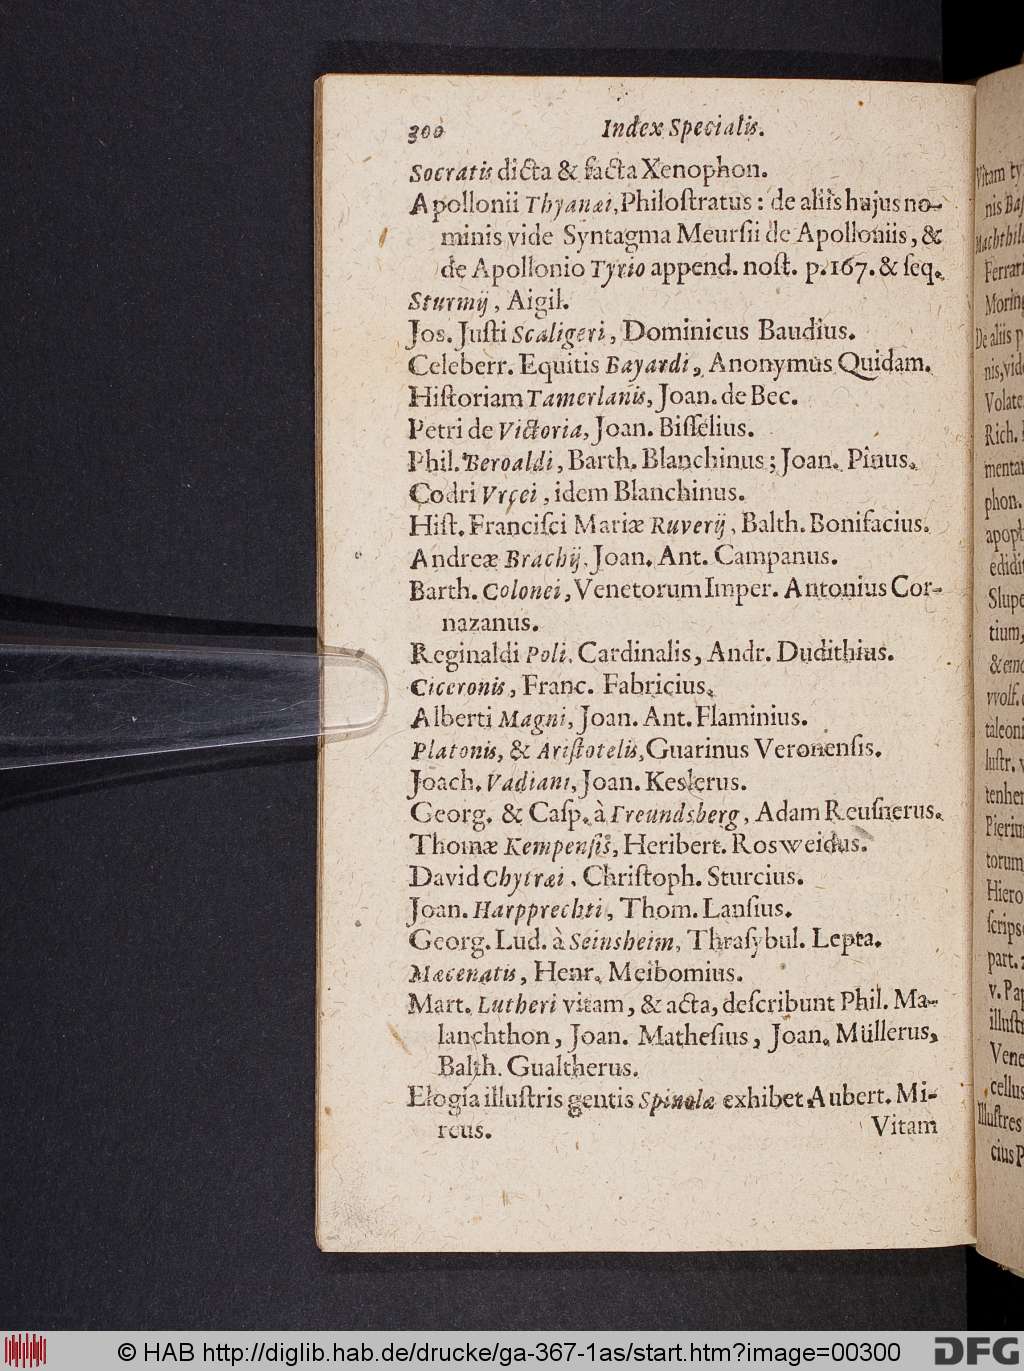 300 Index Specialis.
Socratis dicta & facta Xenophon.
Apollonii Thyanæi, Philoſtratus : de aliis hujus no-
minis vide Syntagma Meurſii de Apolloniis, &
de Apollonio Tyrio append. noſt. p. 167. & ſeq.
Sturmij, Aigil.
Jos. Juſti Scaligeri, Dominicus Baudius.
Celeberr. Equitis Bayardi, Anonymus Quidam.
Hiſtoriam Tamerlanis, Joan. de Bec.
Petri de Victoria, Joan. Biſſelius.
Phil. Beroaldi, Barth. Blanchinus; Joan. Pinus.
Codri Vrcei, idem Blanchinus.
Hiſt. Franciſci Mariæ Ruverij, Balth. Bonifacius.
Andreæ Brachij, Joan. Ant. Campanus.
Barth. Colonei, Venetorum Imper. Antonius Cor-
nazanus.
Reginaldi Poli, Cardinalis, Andr. Dudithius.
Ciceronis, Franc. Fabricius.
Alberti Magni, Joan. Ant. Flaminius.
Platonis, & Ariſtotelis, Guarinus Veronenſis.
Joach. Vadiani, Joan. Keslerus.
Georg. & Caſp. à Freundsberg, Adam Reuſnerus.
Thomæ Kempenſis, Heribert. Rosweidus.
David Chytræi, Chriſtoph. Sturcius.
Joan. Harpprechti, Thom. Lanſius.
Georg. Lud. à Seinsheim, Thraſybul. Lepta.
Mæcenatis, Henr. Meibomius.
Mart. Lutheri vitam, & acta, deſcribunt Phil. Ma-
lanchthon, Joan. Matheſius, Joan. Müllerus,
Balth. Gualtherus.
Elogia illuſtris gentis Spinolæ exhibet Aubert. Mi-
reus. Vitam
© HAB http://diglib.hab.de/drucke/ga-367-1as/start.htm?image=00300
DFG